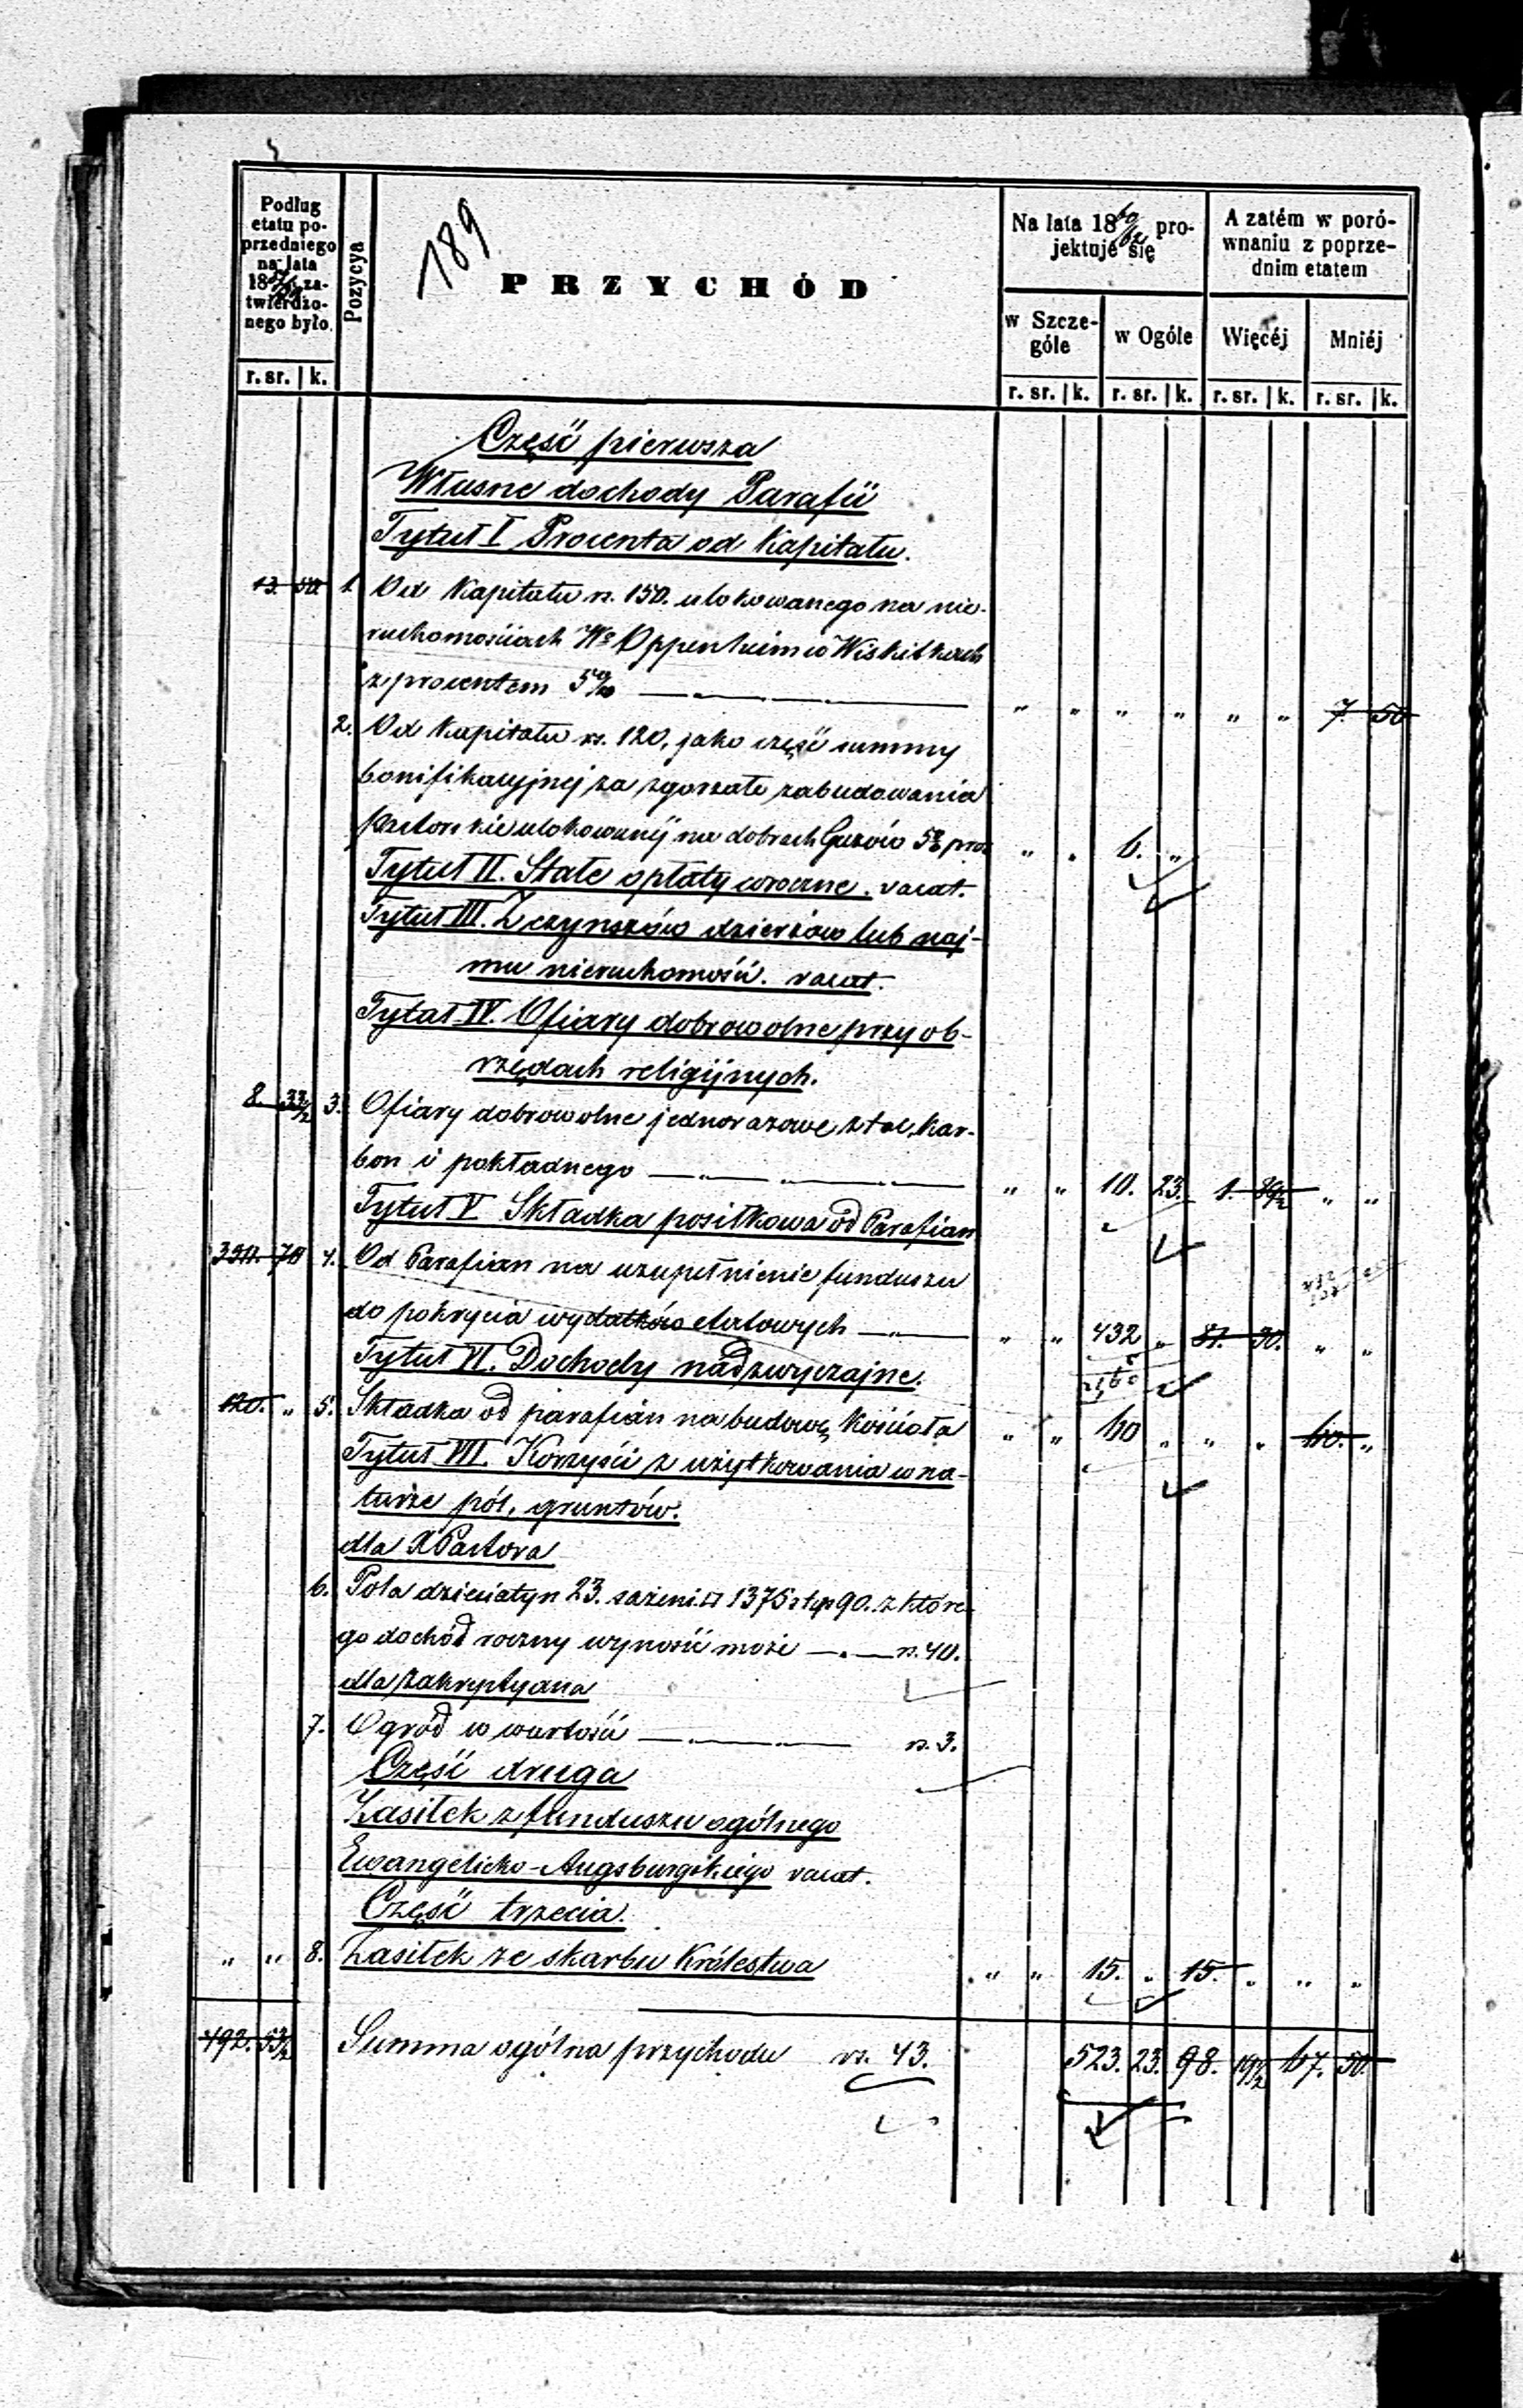 189
Podług etatu poprzedniego na lata 18 zatwierdzonego było.
r. sr. | k.
Pozycya
PRZYCHÓD
Na lata 18 60/62 projektuje się
w Szczególe
r. sr. | k.
w Ogóle
r. sr. | k.
A zatém w porównaniu z poprzednim etatem
Więcéj
r. sr. | k.
Mniéj
r. sr. | k.
Część pierwsza
Własne dochody Parafii
Tytuł I Procenta od Kapitału.
13. 50. 1. Od Kapitału rs. 150. ulokowanego na nie-
ruchomościach Wo Oppenheim w Wiskitkach
z procentem 5% " " " " " " 7. 50
2. Od Kapitału rs. 120, jako część summy
bonifikacyjnej za zgorzałe zabudowania
pastorskie ulokowanej na dobrach Guzów 5% proc " " 6. "
Tytuł II. Stałe opłaty roczne. vacat.
Tytuł III. Z czynszów dzierżaw lub naj-
mu nieruchomości. vacat.
Tytuł IV. Ofiary dobrowolne przy ob-
rzędach religijnych.
8. 33½ 3. Ofiary dobrowolne jednorazowe z tac, kar-
bon i pokładnego " " 10. 23. 1. 89½ " "
Tytuł V Składka posiłkowa od Parafian
350. 70 4. Od Parafian na uzupełnienie funduszu
do pokrycia wydatków etatowych " " 432 " 81. 30. " "
Tytuł VI. Dochody nadzwyczajne.
120. " 5. Składka od parafian na budowę Kościoła " " 60 " " " 60. "
Tytuł VII. Korzyści z użytkowania w na-
turze pól, gruntów.
dla X Pastora
6. Pola dziesiatyn 23. sażeni □ 1375 stp 90. z które-
go dochód roczny wynosić może rs. 40.
dla Zakrystyana
7. Ogród w wartości rs. 3.
Część druga
Zasiłek z funduszu ogólnego
Ewangelicko-Augsburgskiego vacat.
Część trzecia.
" " 8. Zasiłek ze skarbu Królestwa " " 15. " 15. " " "
492. 53½ Summa ogólna przychodu rs. 43. 523. 23. 98. 19½ 67. 50.